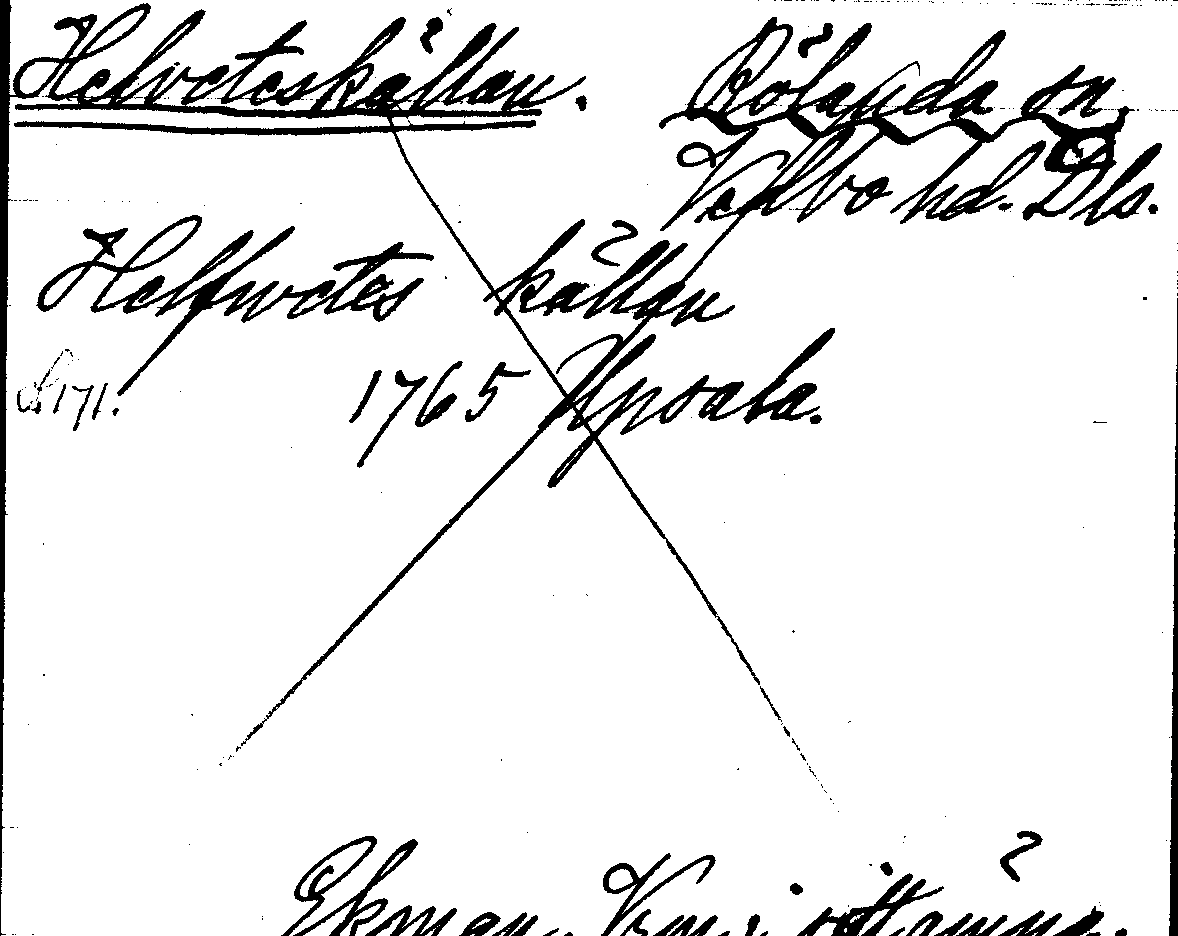 Helveteskällan. Rölanda sn,
Vedbo hd. Dls.
Helfwetes källan
S. 171. 1765 Upsala.
Ekman, Vrm i sitt ämne.